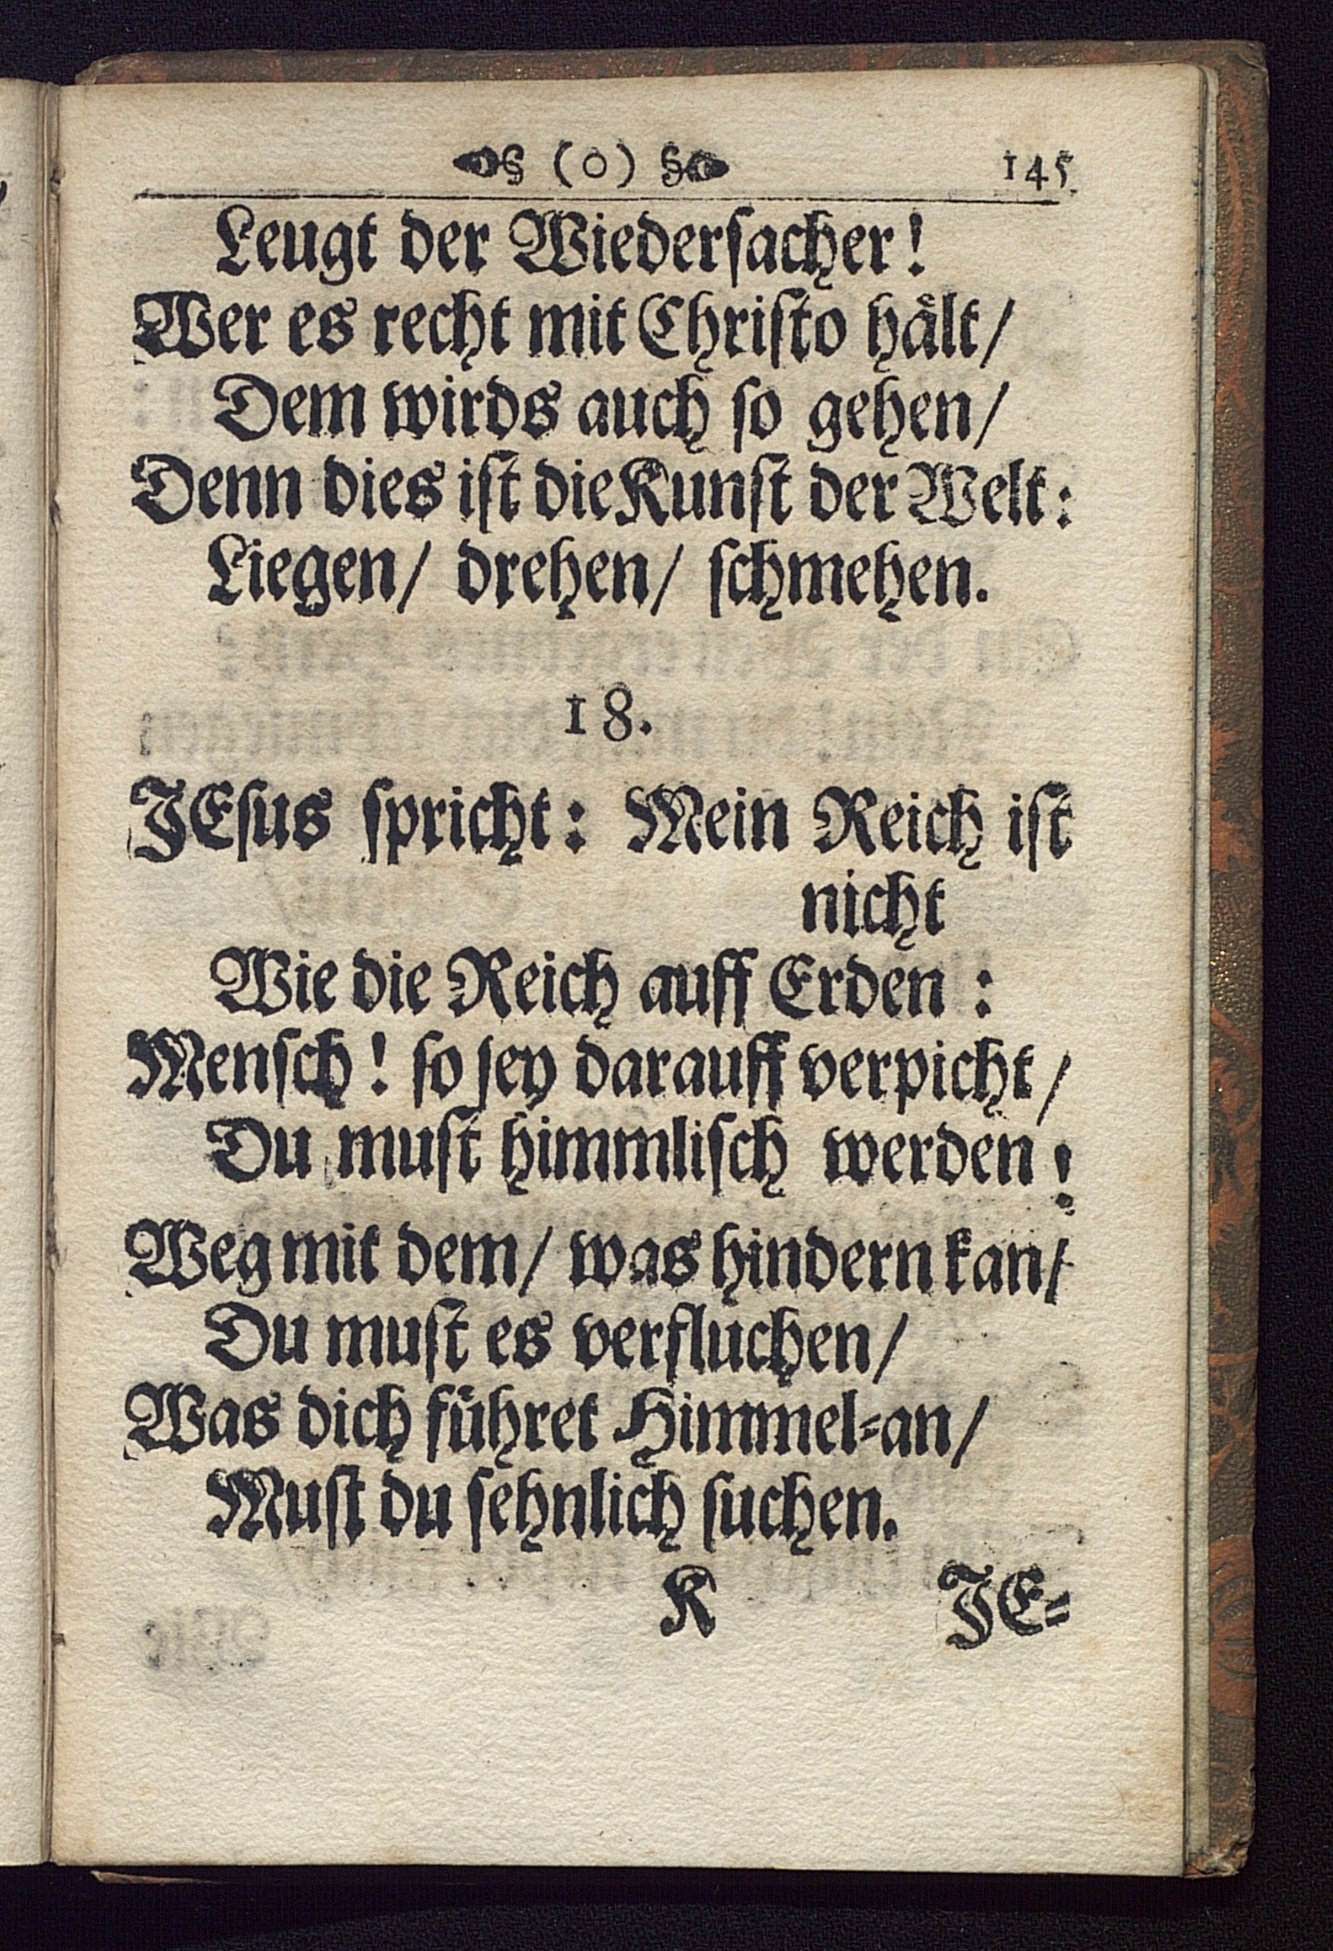 § (o) § 145.
Leugt der Wiederſacher!
Wer es recht mit Chriſto haͤlt/
Dem wirds auch ſo gehen/
Denn dies iſt die Kunſt der Welt:
Liegen/ drehen/ ſchmehen.
18.
JEſus ſpricht: Mein Reich iſt
nicht
Wie die Reich auff Erden:
Menſch! ſo ſey darauff verpicht/
Du muſt himmliſch werden!
Weg mit dem/ was hindern kan/
Du muſt es verfluchen/
Was dich fuͤhret Himmel-an/
Muſt du ſehnlich ſuchen.
K JE-